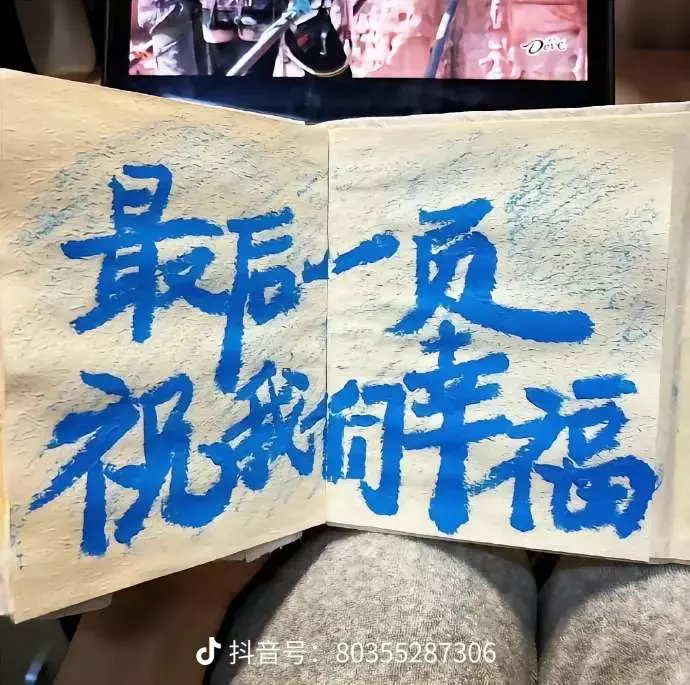 Dove
最后一页
祝我们幸福
抖音号：80355287306